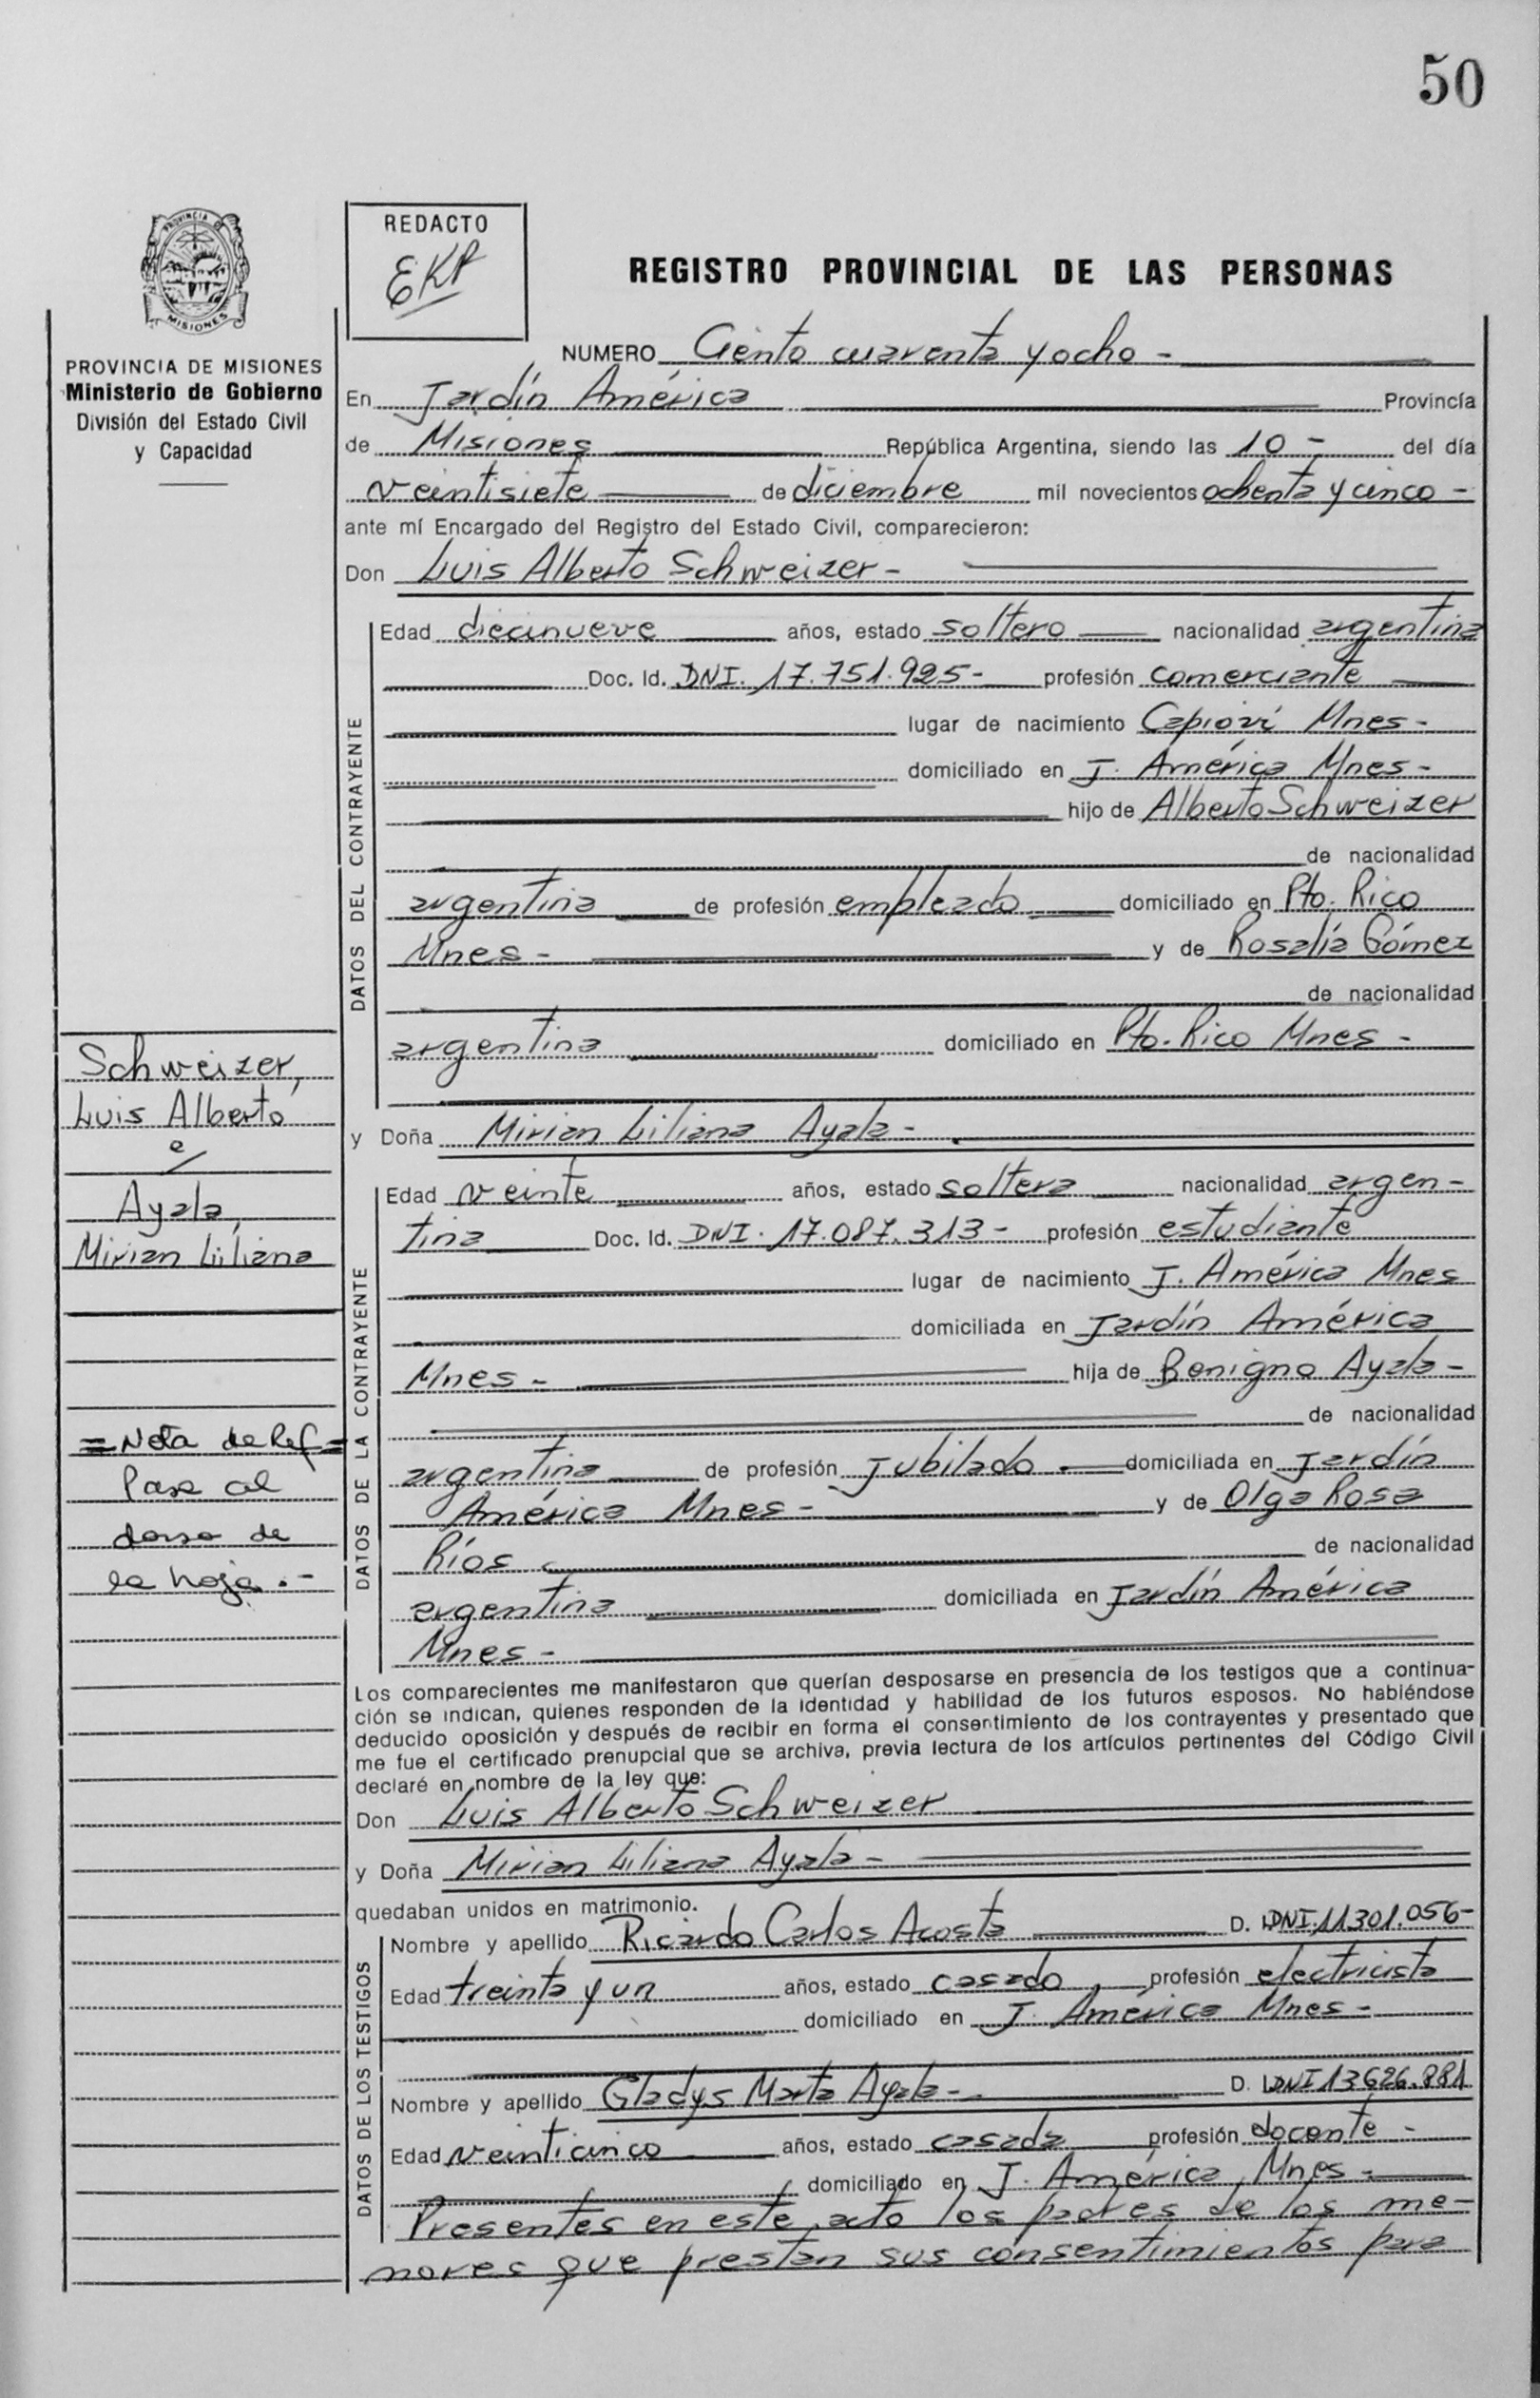 50
PROVINCIA DE
MISIONES
PROVINCIA DE MISIONES
Ministerio de Gobierno
División del Estado Civil
y Capacidad
REDACTO
EKA
REGISTRO PROVINCIAL DE LAS PERSONAS
NUMERO Ciento cuarenta y ocho -
En Jardín América Provincia
de Misiones República Argentina, siendo las 10 - del día
veintisiete de diciembre mil novecientos ochenta y cinco -
ante mí Encargado del Registro del Estado Civil, comparecieron:
Don Luis Alberto Schweizer -
DATOS DEL CONTRAYENTE
Edad diecinueve años, estado soltero nacionalidad argentina
Doc. Id. DNI. 17.751.925 - profesión comerciante
lugar de nacimiento Capioví Mnes -
domiciliado en J. América Mnes -
hijo de Alberto Schweizer
de nacionalidad
argentina de profesión empleado domiciliado en Pto. Rico
Mnes - y de Rosalía Gómez
de nacionalidad
argentina domiciliado en Pto. Rico Mnes -
Schweizer,
Luis Alberto
e/
Ayala,
Mirian Liliana
y Doña Mirian Liliana Ayala -
DATOS DE LA CONTRAYENTE
Edad veinte años, estado soltera nacionalidad argen-
tina Doc. Id. DNI. 17.087.313 - profesión estudiante
lugar de nacimiento J. América Mnes
domiciliada en Jardín América
Mnes - hija de Benigno Ayala -
de nacionalidad
argentina de profesión jubilado domiciliada en Jardín
América Mnes - y de Olga Rosa
Ríos de nacionalidad
argentina domiciliada en Jardín América
Mnes -
= Nota de Ref =
Pasa al
dorso de
la hoja. -
Los comparecientes me manifestaron que querían desposarse en presencia de los testigos que a continua-
ción se indican, quienes responden de la identidad y habilidad de los futuros esposos. No habiéndose
deducido oposición y después de recibir en forma el consentimiento de los contrayentes y presentado que
me fue el certificado prenupcial que se archiva, previa lectura de los artículos pertinentes del Código Civil
declaré en nombre de la ley que:
Don Luis Alberto Schweizer
y Doña Mirian Liliana Ayala -
quedaban unidos en matrimonio.
DATOS DE LOS TESTIGOS
Nombre y apellido Ricardo Carlos Acosta D. I. DNI. 11301.056 -
Edad treinta y un años, estado casado profesión electricista
domiciliado en J. América Mnes -
DATOS DE LOS TESTIGOS
Nombre y apellido Gladys Marta Ayala - D. I. DNI 13626.881
Edad veinticinco años, estado casada profesión docente -
domiciliado en J. América Mnes -
Presentes en este acto los padres de los me-
nores que prestan sus consentimientos para